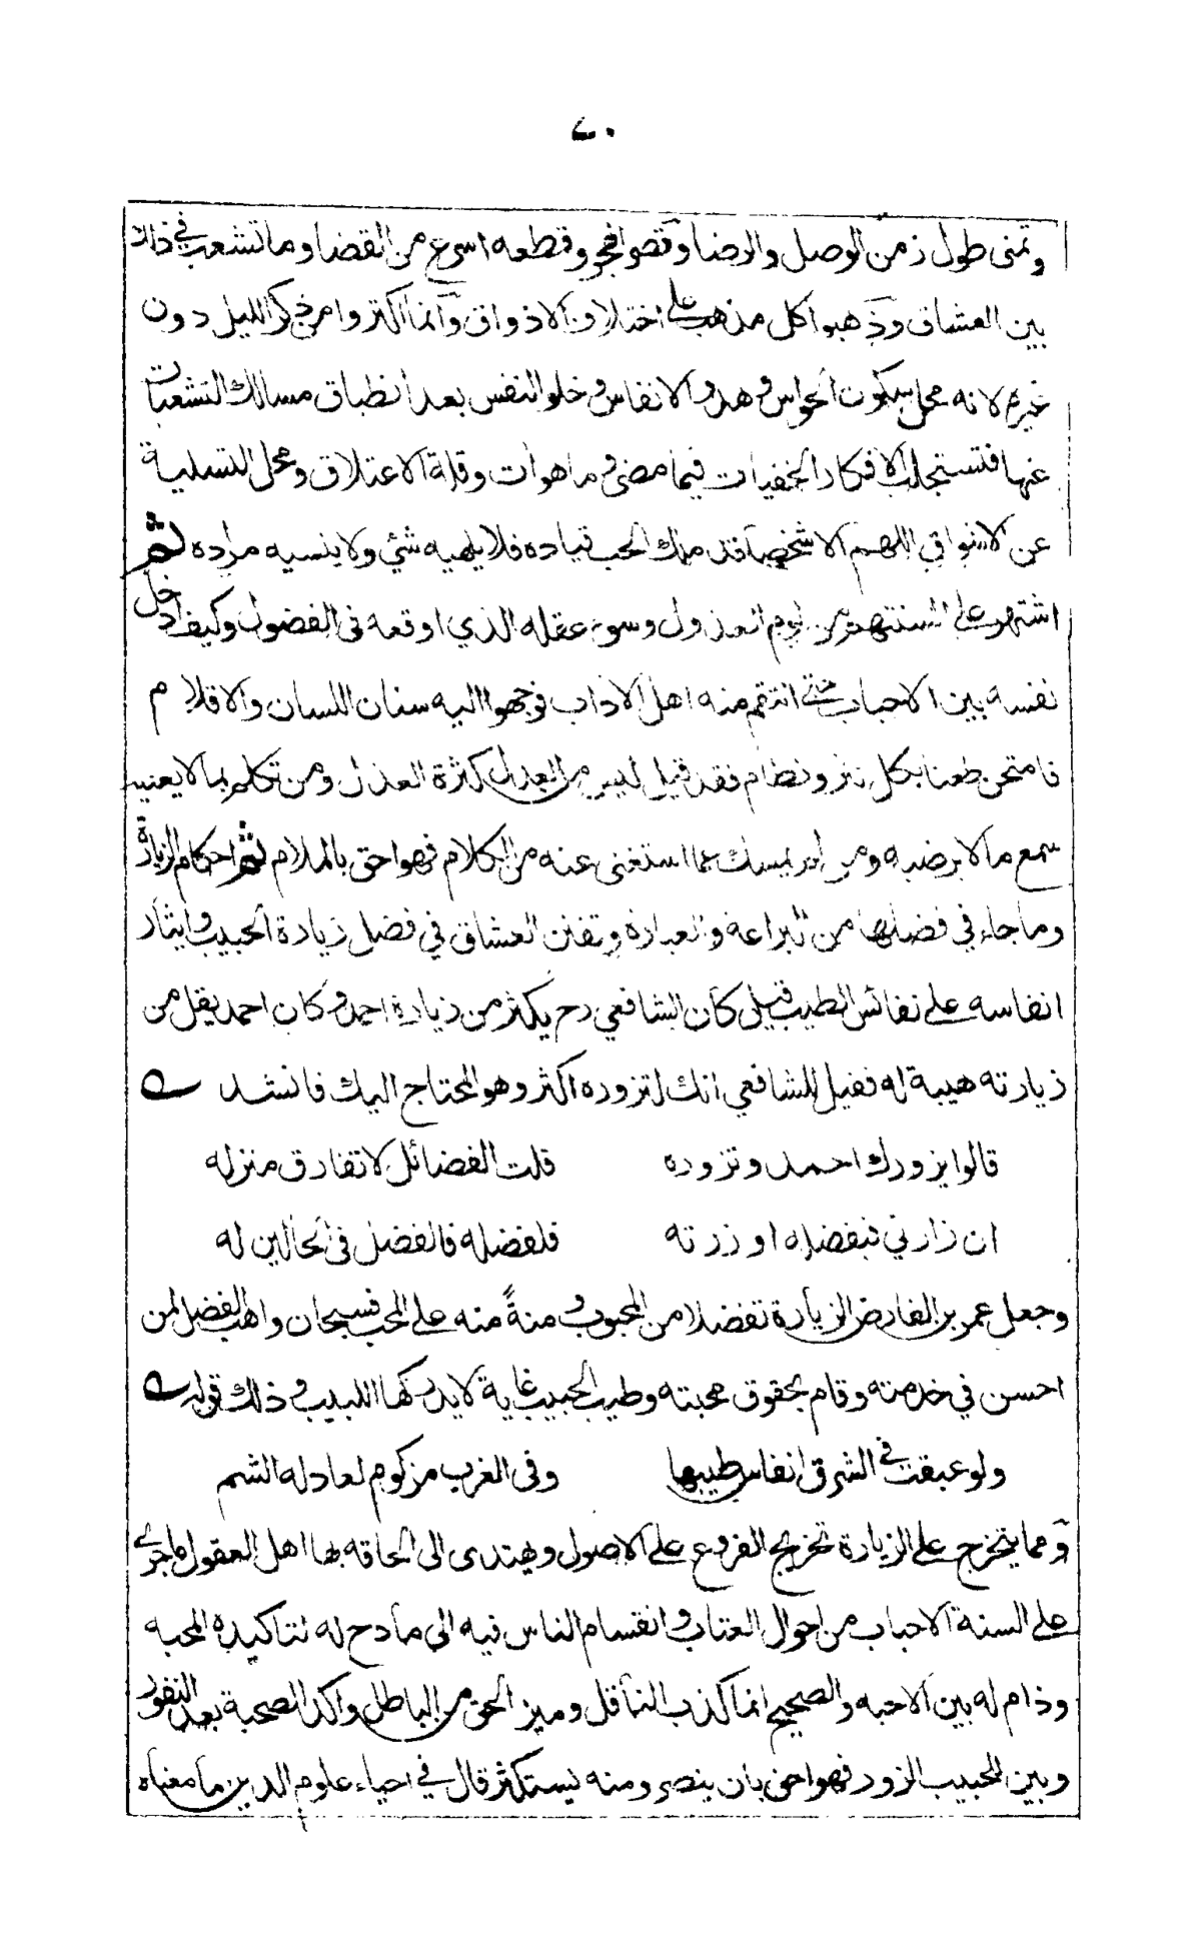 ٧٠
وتمنى طول زمن الوصل والرضا وقصر الهجر وقطعه اسرع من القضا وما تشعب في ذلك
بين العشاق وذهبوا كل مذهب على اختلاف الاذواق وانما اكثروا من ذكر الليل دون
غيره لانه محل سكون الحواس وهدو الانفاس وخلو النفس بعد انطباق مسالك التشعبات
عنها فتستجلب الافكار الخفيات فيما مضى وما هو ات وقلة الاعتلاق ومحل التسلية
عن الاشواق اللهم الا شخصا قد ملك الحب قياده فلا يلهيه شئ ولا ينسيه مراده ثم
اشتهر على السنتهم من لوم العذول وسوء عقله الذي اوقعه فى الفضول وكيف ادخل
نفسه بين الاحباب حتى انتقم منه اهل الاداب فوجهوا اليه سنان اللسان والاقلام
فامتحن طعنا بكل نثر ونظام فقد قيل ليس من العدل كثرة العذل ومن تكلم بما لا يعنيه
سمع ما لا يرضيه ومن لم يمسك عما استغنى عنه من الكلام فهو احق بالملام ثم احكام الزيارة
وما جاء في فضلها من البراعة والعبارة وتفنن العشاق في فضل زيارة الحبيب وايثار
انفاسه على نفائس الطيب قيل كان الشافعي رح يكثر من زيارة احمد وكان احمد يقل من
زيارته هيبة له فقيل للشافعي انك لتزوره اكثر وهو المحتاج اليك فانشد
قالوا يزورك احمد وتزوره قلت الفضائل لا تفارق منزله
ان زارني فبفضله او زرته فلفضله فالفضل فى الحالين له
وجعل عمر بن الفارض الزيارة تفضلا من المحبوب ومنةً منه على المحب فسبحان واهب الفضل لمن
احسن في خدمته وقام بحقوق محبته وطيب الحبيب غاية لا يدركها اللبيب وذلك قوله
ولو عبقت في الشرق انفاس طيبها وفى الغرب مزكوم لعاد له الشم
ومما يتخرج على الزيارة تخريج الفروع على الاصول ويهتدى الى الحاقه بها اهل العقول ما جرى
على السنة الاحباب من احوال العتاب وانقسام الناس فيه الى مادح له لتاكيده المحبه
وذام له بين الاحبه والصحيح انما كذب الناقل وميز الحق من الباطل واكد الصحبة بعد النفور
وبين للحبيب الزور فهو احق بان ينصر ومنه يستكثر قال في احياء علوم الدين ما معناه